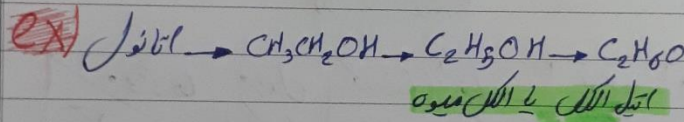 ex) اتانول → CH₃CH₂OH → C₂H₅OH → C₂H₆O
اتیل الکل یا الکل میوه